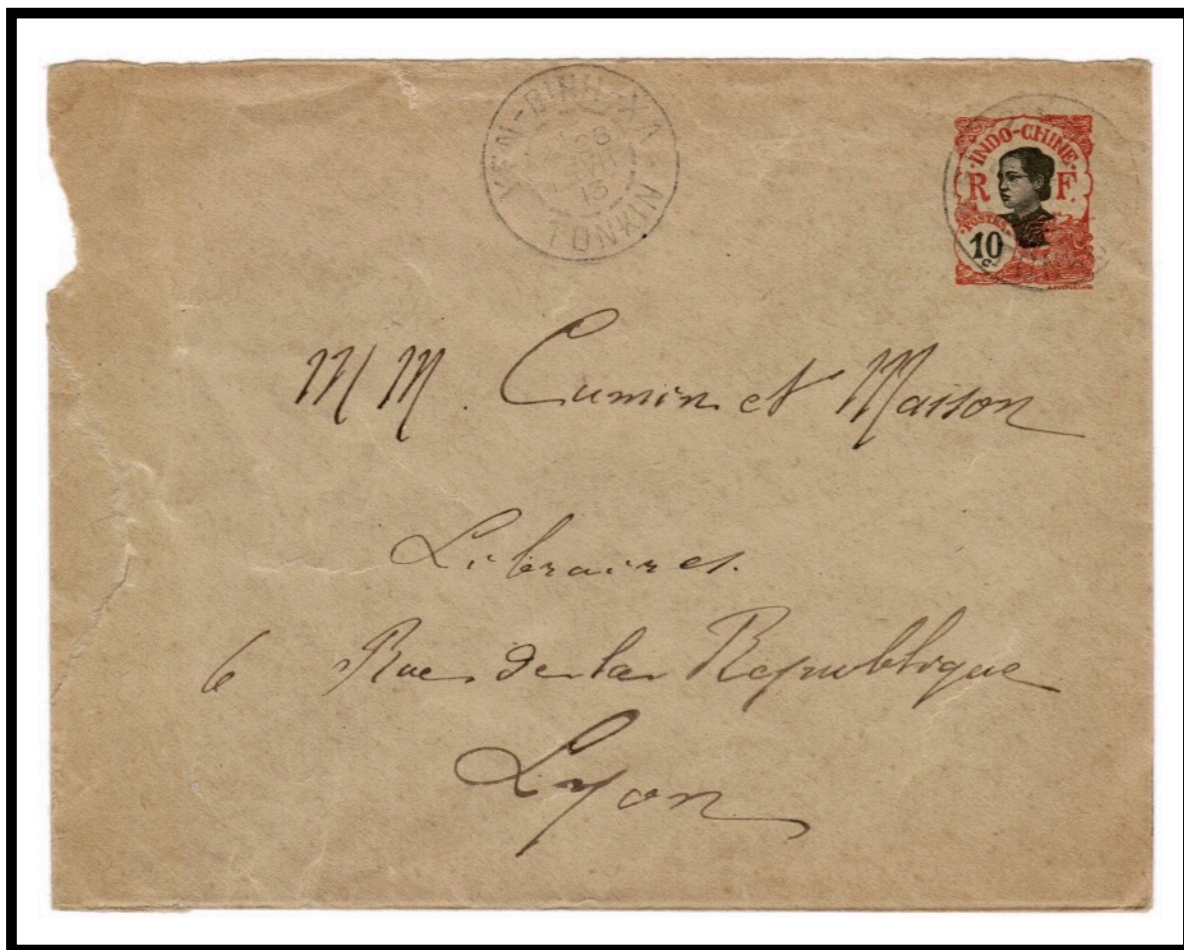 YEN-BINH-XA
TONKIN
13
INDO-CHINE
R F.
POSTES
10
c.
MM. Cumin et Masson
Libraires.
6 Rue de la Republique
Lyon